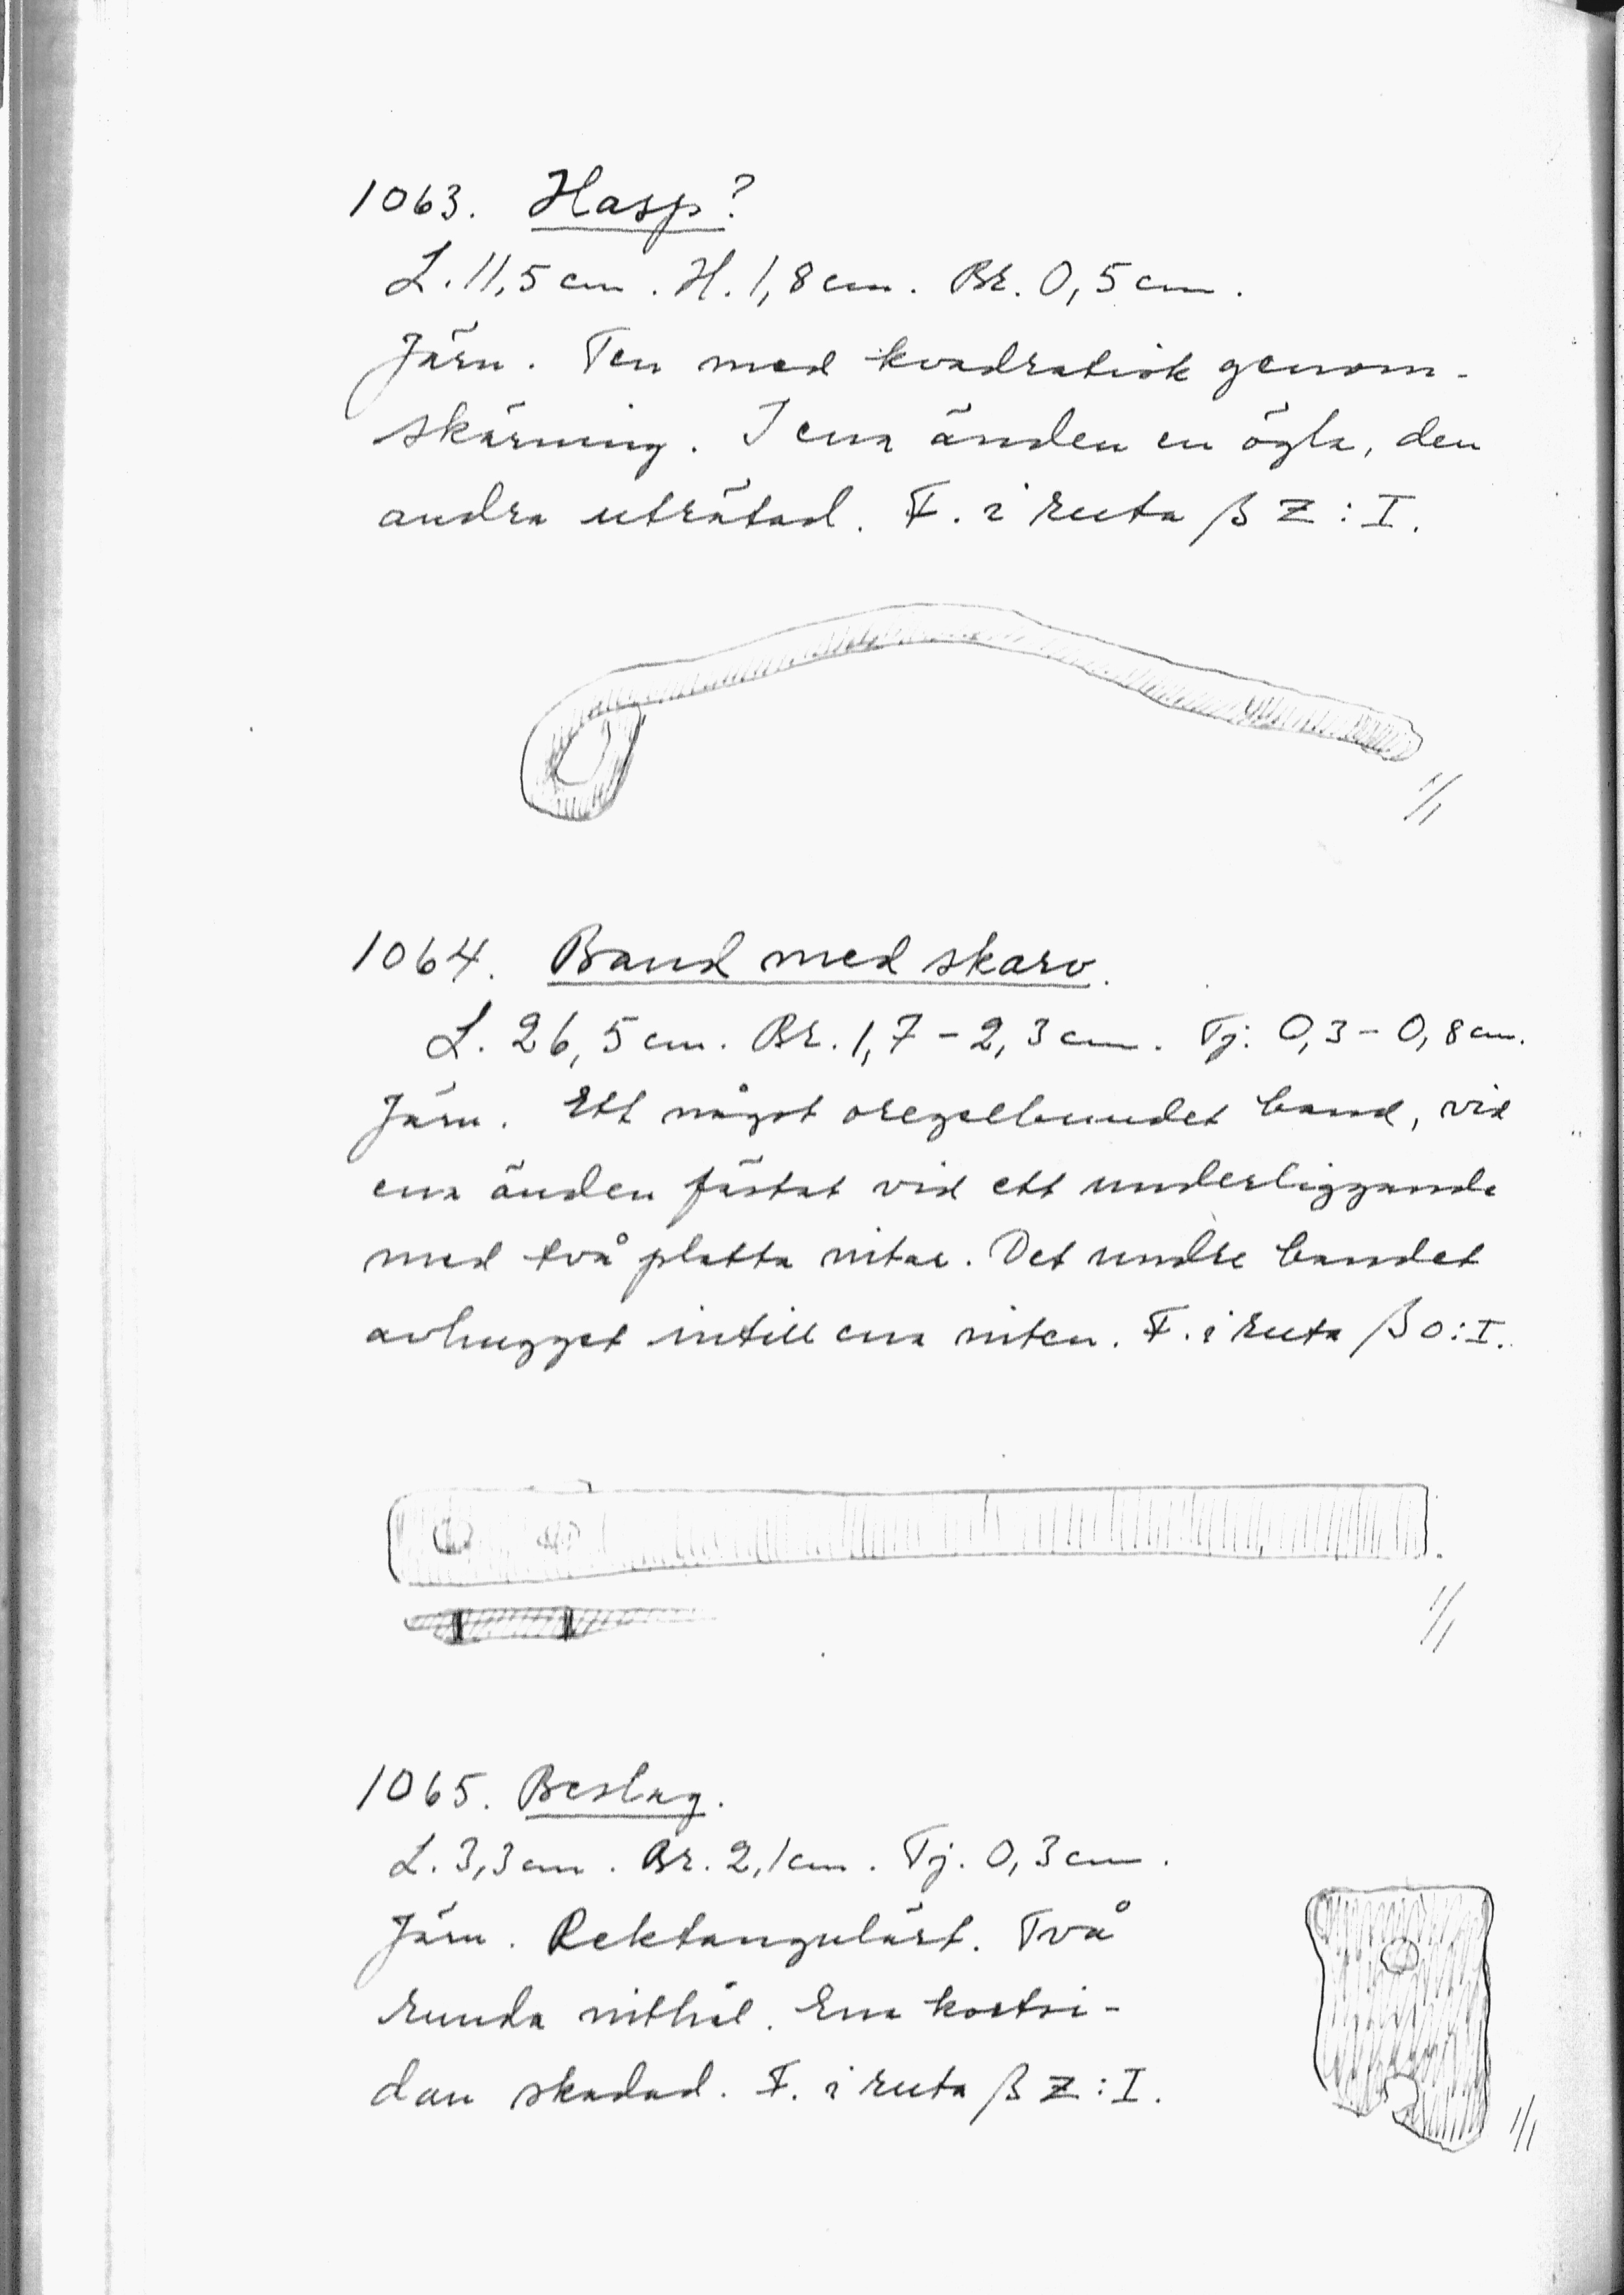 1063. Hasp?
L. 11,5 cm. H. 1,8 cm. Br. 0,5 cm.
Järn. Ten med kvadratisk genom-
skärning. I ena änden en ögla, den
andra uträtad. F. i ruta β Z : I.
1/1
1064. Band med skarv.
L. 26,5 cm. Br. 1,7 - 2,3 cm. Tj: 0,3 - 0,8 cm.
Järn. Ett något oregelbundet band, vid
ena änden fästat vid ett underliggande
med två platta nitar. Det undre bandet
avhugget intill ena niten. F. i ruta β O : I.
1/1
1065. Beslag.
L. 3,3 cm. Br. 2,1 cm. Tj. 0,3 cm.
Järn. Rektangulärt. Två
runda nithål. Ena kortsi-
dan skadad. F. i ruta β Z : I.
1/1